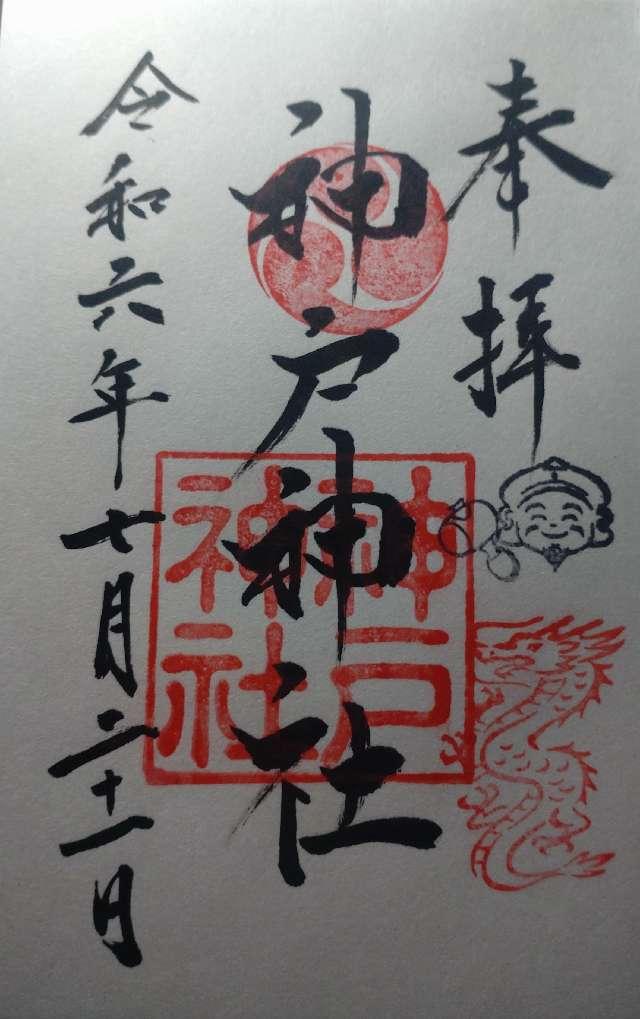 奉拝
神戸神社
神戸
神社
令和六年七月二十一日